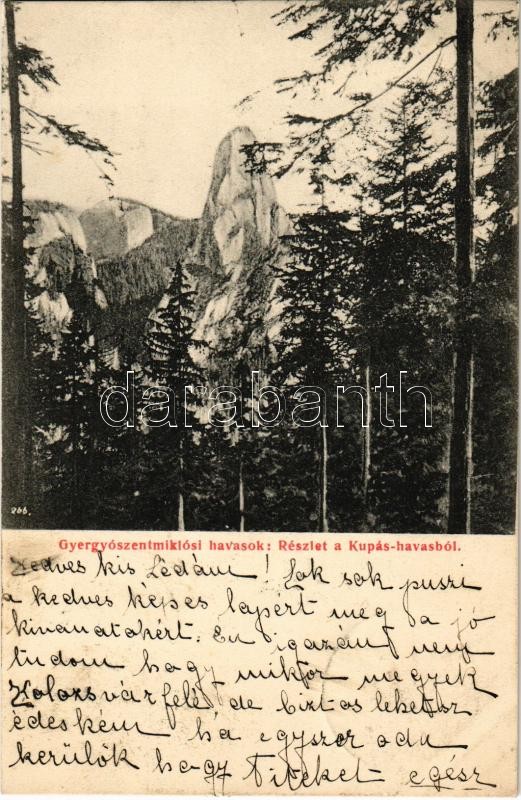 darabanth
266.
Gyergyószentmiklósi havasok: Részlet a Kupás-havasból.
Kedves kis Lédám! Sok sok puszi
a kedves képes lapért meg a jó
kivánatokért. Én igazán nem
tudom hogy mikor megyek
Kolozsvárfelé de biztos lehetsz
édeském ha egyszer oda
kerülök hogy Titeket egész